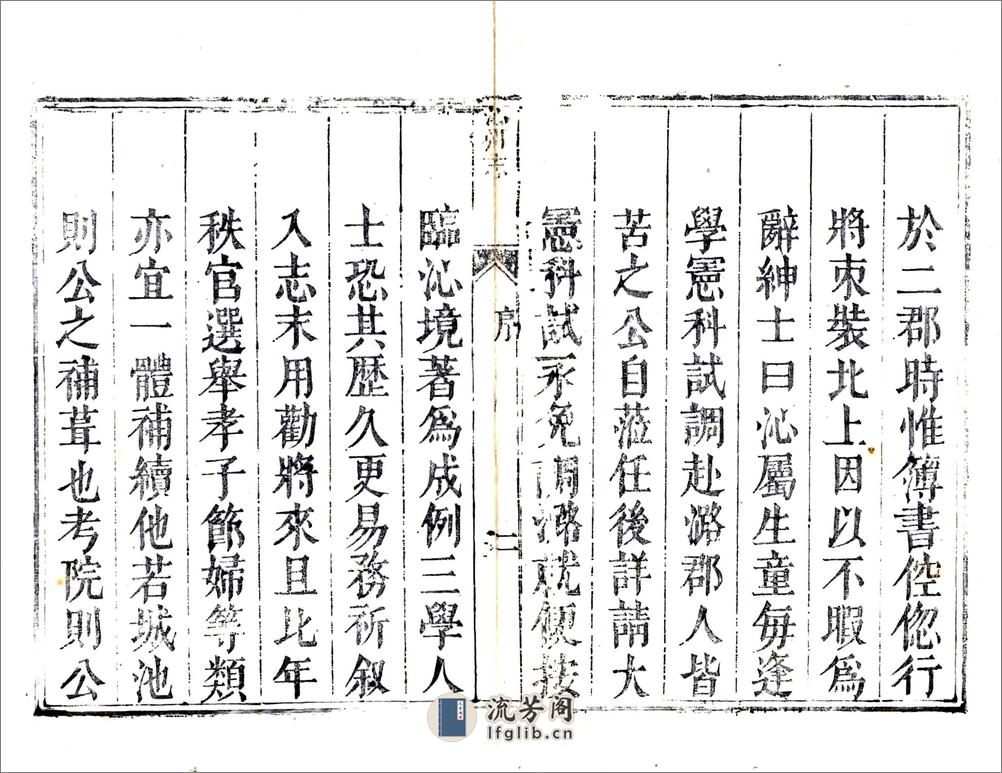 於二郡時惟簿書倥偬行
將束裝北上因以不暇爲
辭紳士曰沁屬生童每逢
學憲科試調赴潞郡人皆
苦之公自蒞任後詳請大
憲科試永免調潞就便按
沁州志
序
二
臨沁境著爲成例三學人
士恐其歷久更易務祈叙
入志末用勸將來且比年
秩官選舉孝子節婦等類
亦宜一體補續他若城池
則公之補葺也考院則公
流芳阁
lfglib.cn